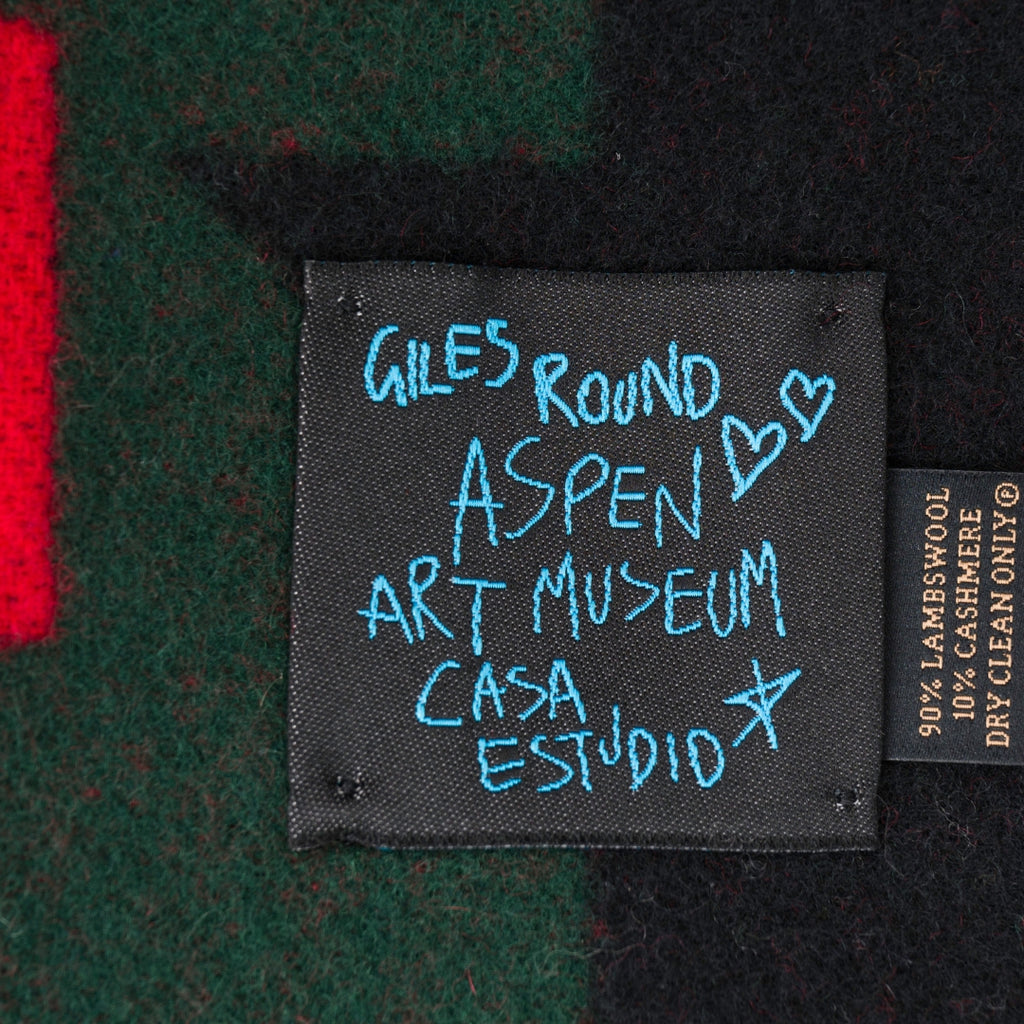 GILES ROUND
ASPEN
ART MUSEUM
CASA
ESTUDIO
90% LAMBSWOOL
10% CASHMERE
DRY CLEAN ONLY Ⓟ